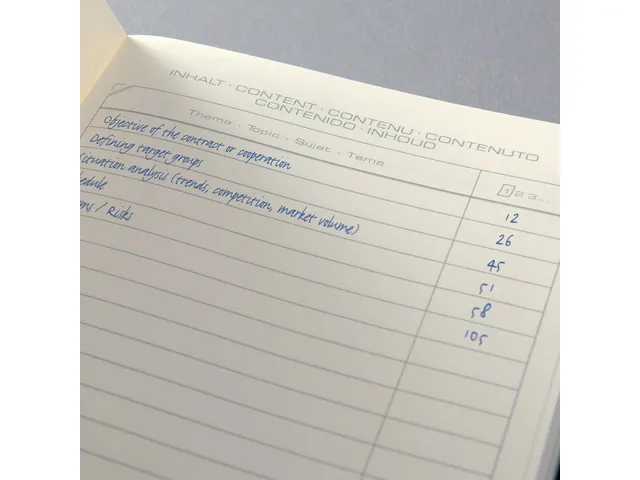 INHALT · CONTENT · CONTENU · CONTENUTO
CONTENIDO · INHOUD
Thema · Topic · Sujet · Tema
1 2 3...
Objective of the contract or cooperation 12
Defining target groups 26
situation analysis (trends, competition, market volume) 45
51
/ Risks 58
105